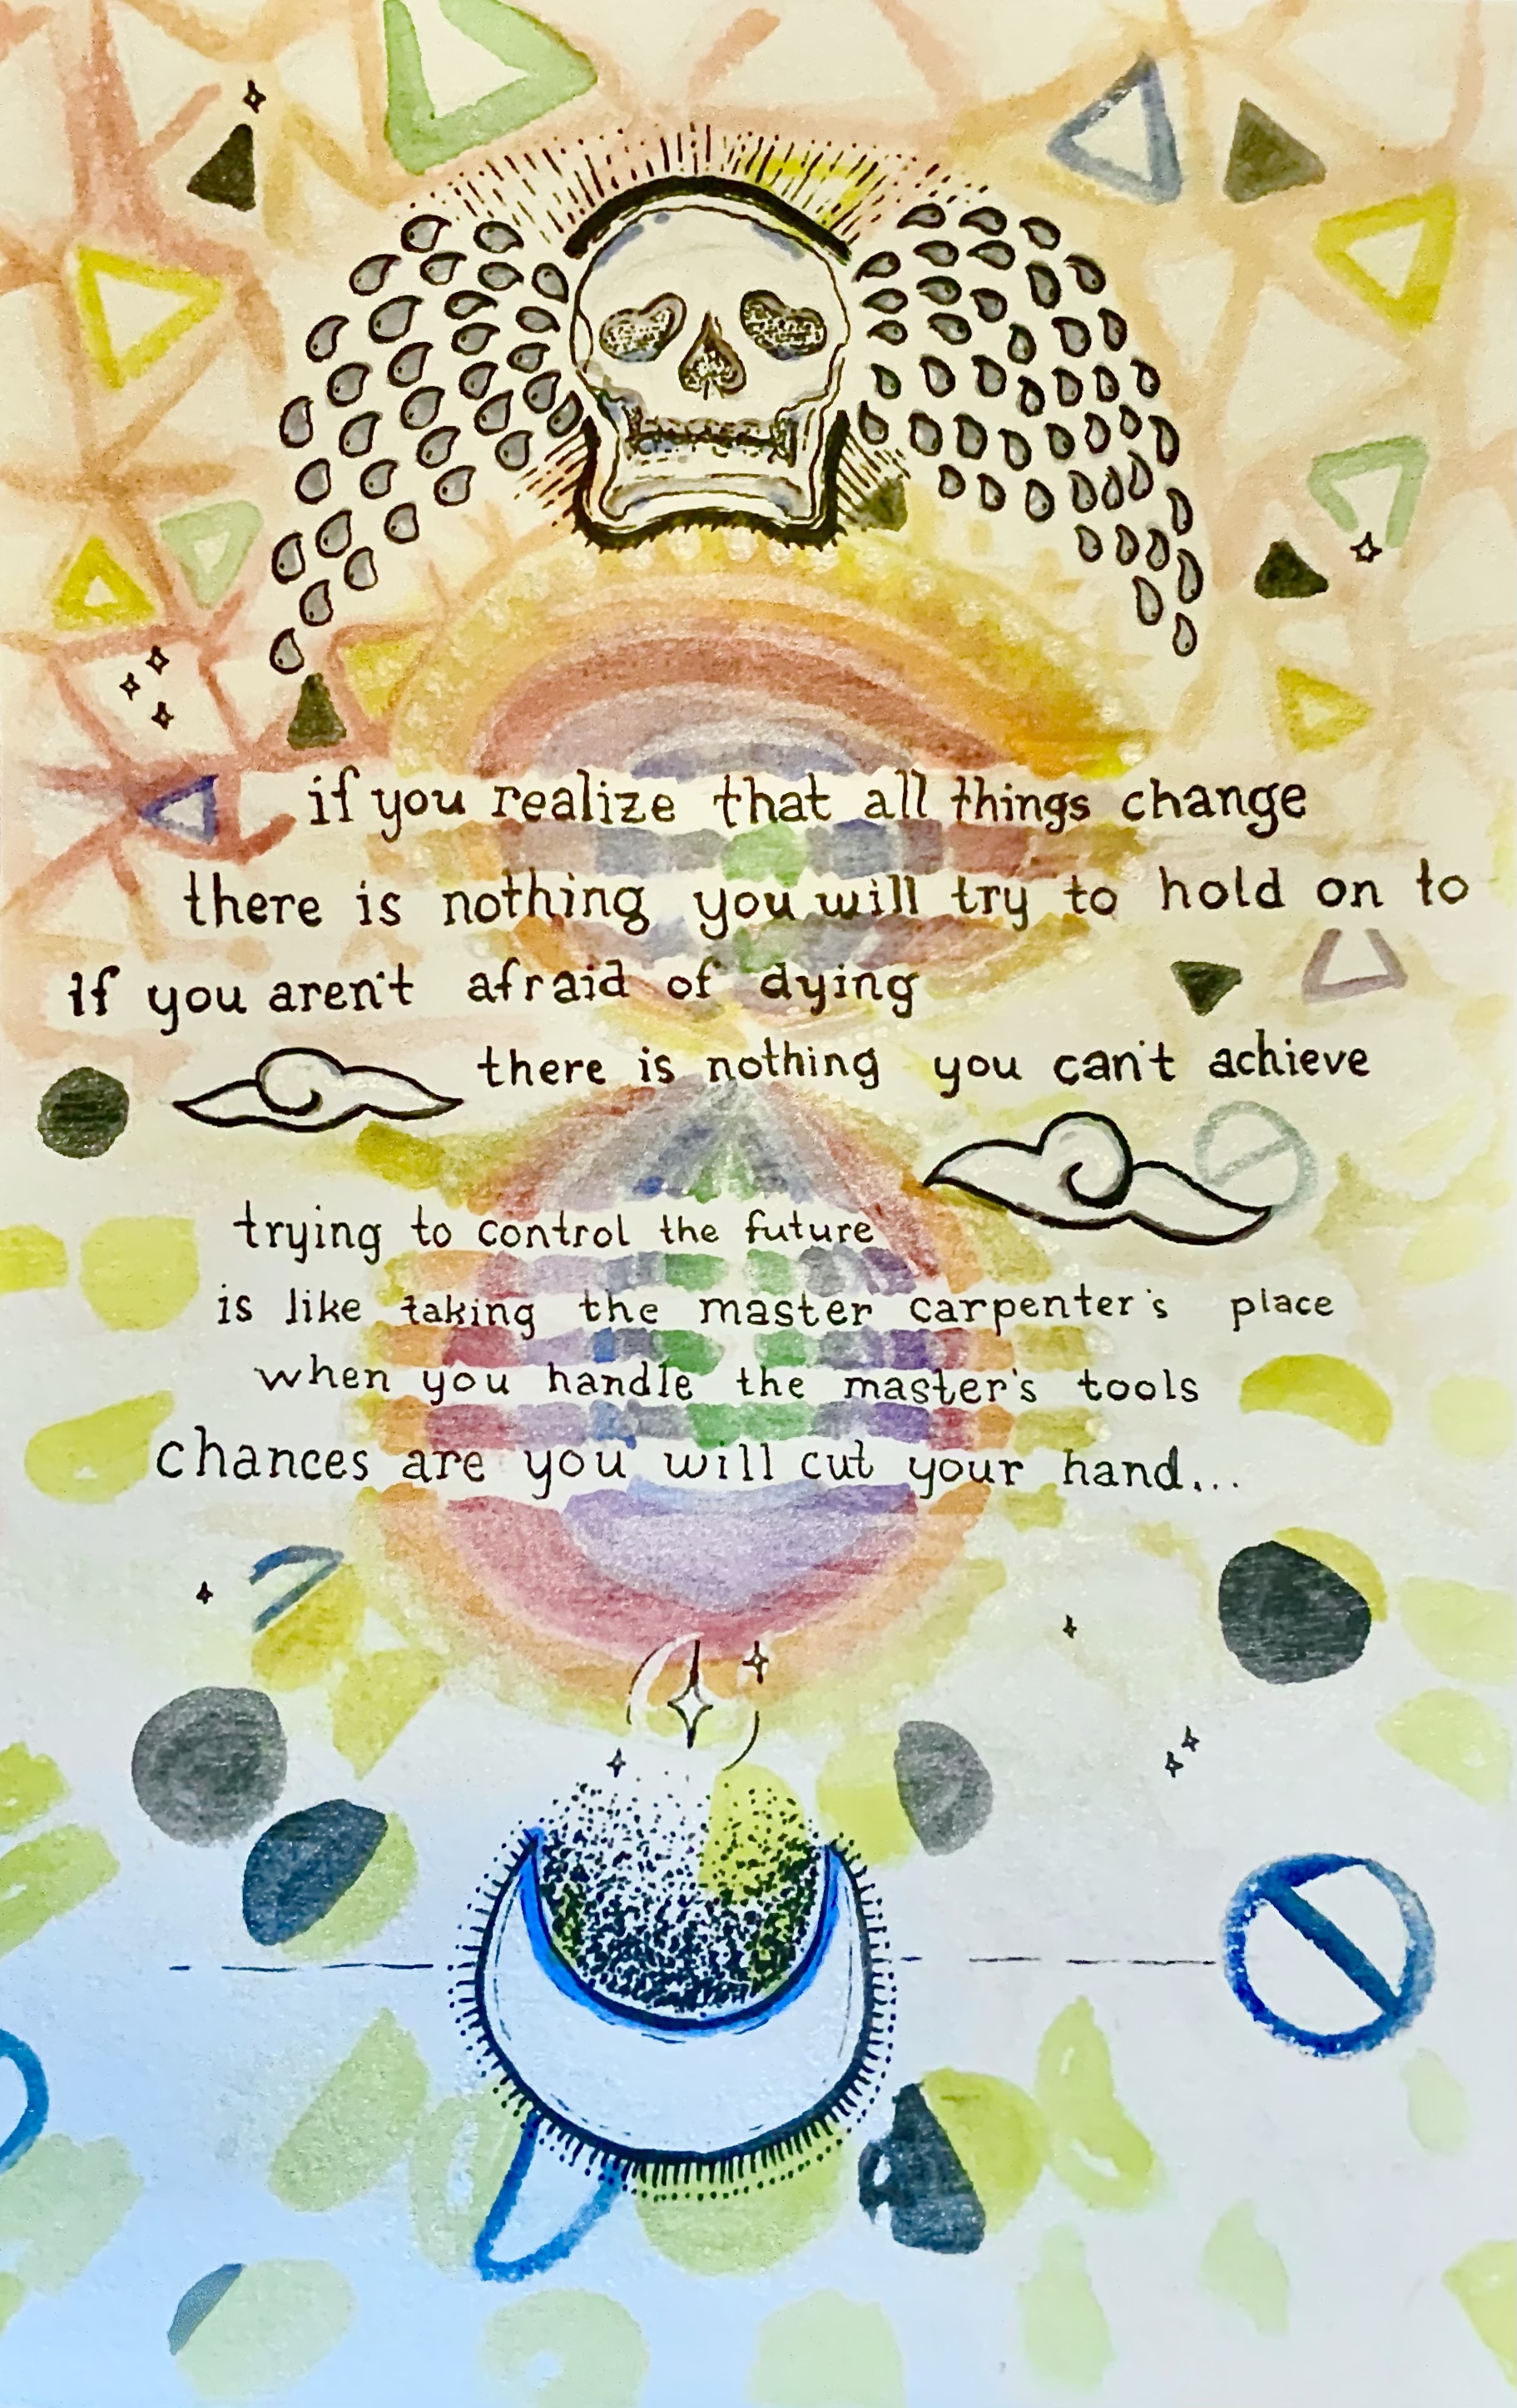 if you realize that all things change
there is nothing you will try to hold on to
if you aren't afraid of dying
there is nothing you can't achieve
trying to control the future
is like taking the master carpenter's place
when you handle the master's tools
chances are you will cut your hand...